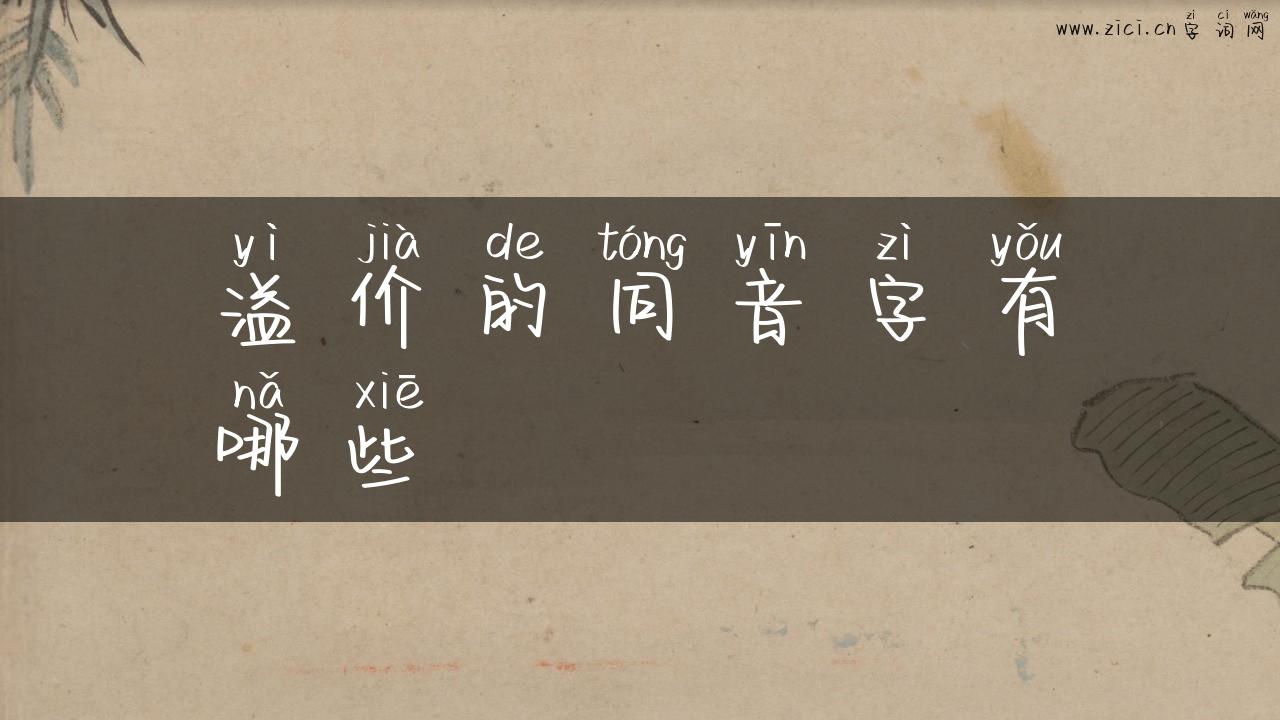 zì cí wǎng
www.zici.cn 字词网
yì jià de tóng yīn zì yǒu
溢价的同音字有
nǎ xiē
哪些